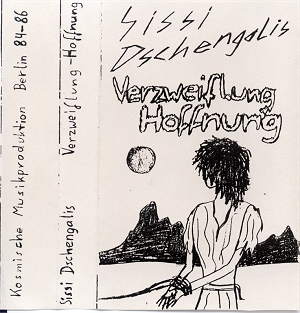 Kosmische Musikproduktion Berlin 84-86
Sissi Dschengalis Verzweiflung-Hoffnung
Sissi
Dschengalis
Verzweiflung
Hoffnung